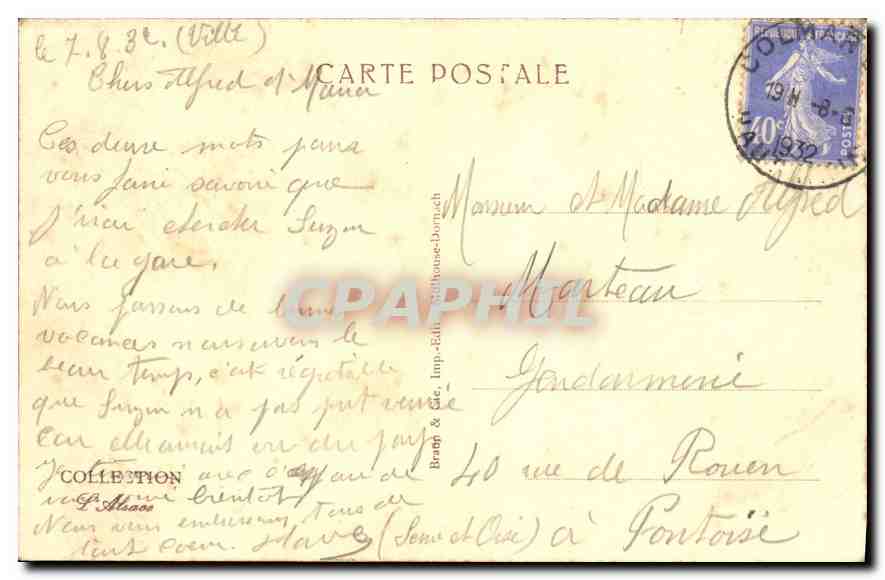 le 7.8.32. (Ville)
Chers Alfred et Maria
CARTE POSTALE
Ces deux mots pour
vous faire savoir que
J'irai chercher Suzon
à la gare.
Nous passons de bonnes
vacances nous avons le
beau temps, c'est régretable
que Suzon n'a pas put venir
car elle aurait vu du pays
avec
COLLECTION
L'Alsace
bientôt
Nous vous embrassons tous de
tout coeur.
Braun & Cie, Imp.-Edit. Mulhouse-Dornach
COLMAR
19H -8-
1932
REPUBLIQUE FRANCAISE
40c
POSTES
Monsieur et Madame Alfred
Marteau
Gendarmerie
40 rue de Rouen
à Pontoise
(Seine et Oise)
CPAPHIL